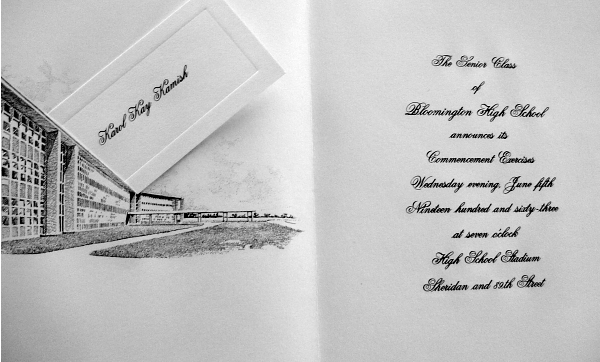 Karol Kay Kamish
The Senior Class
of
Bloomington High School
announces its
Commencement Exercises
Wednesday evening, June fifth
Nineteen hundred and sixty-three
at seven o'clock
High School Stadium
Sheridan and 89th Street